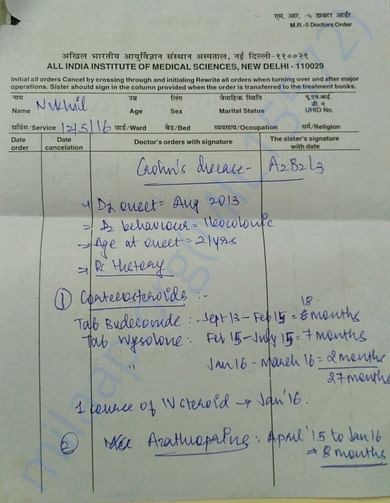 एम. आर. -५ डाक्टर आर्डर
M.R.-5 Doctors Order
अखिल भारतीय आयुर्विज्ञान संस्थान अस्पताल, नई दिल्ली-११००२९
ALL INDIA INSTITUTE OF MEDICAL SCIENCES, NEW DELHI - 110029
Initial all orders Cancel by crossing through and initiating Rewrite all orders when turning over and after major
operations. Sister should sign in the column provided when the order is transferred to the treatment books.
नाम उम्र लिंग वैवाहिक स्थिति यू.एच.आई. डी. नं.
Name Nikhil Age Sex Marital Status UHID No.
सर्विस Service 12/5/16 वार्ड/Ward बेड/Bed व्यवसाय/Occupation धर्म/Religion
Date order Date cancelation Doctor's orders with signature The sister's signature with date
Crohn's disease - A2B2L3
→ Dz onset = Aug 2013
→ Dz behaviour = Ileocolonic
→ Age at onset = 21yrs
→ History
① Corticosteroids :-
Tab Budesonide : Sept 13 - Feb 15 = 18 months
Tab Wysolone : Feb 15 - July 15 = 7 months
" Jan 16 - March 16 = 2 months
27 months
1 course of IV steroid → Jan'16.
② Azathioprine : April '15 to Jan 16
⇒ 8 months
milaap.org